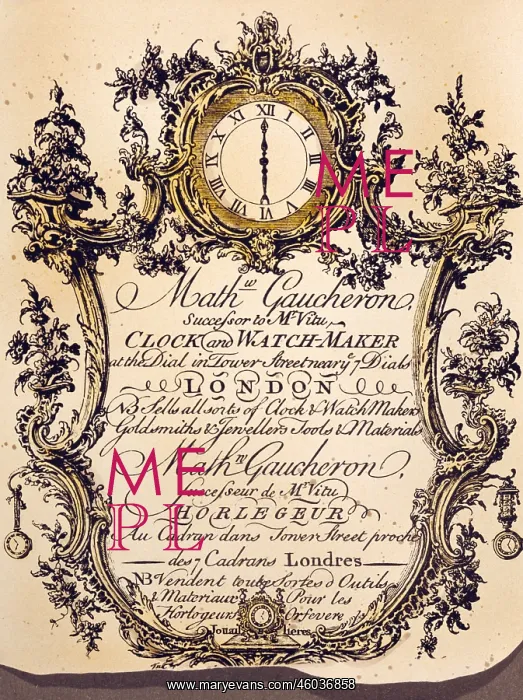 XII I II III IIII V VI VII VIII IX X XI
Math.w Gaucheron,
Successor to Mr. Vitu,
CLOCK and WATCH-MAKER
at the Dial in Tower Street near ye 7 Dials
LONDON
NB Sells all sorts of Clock & Watch Makers
Goldsmiths & Jewellers Tools & Materials
Math.w Gaucheron,
Successeur de Mr. Vitu
HORLEGEUR
Au Cadran dans Tower Street proche
des 7 Cadrans Londres
NB Vendent toute Sortes d Outils
& Materiaux Pour les
Horlogeurs Orfevere
Jouaillieres
ME
PL
ME
PL
www.maryevans.com/46036858